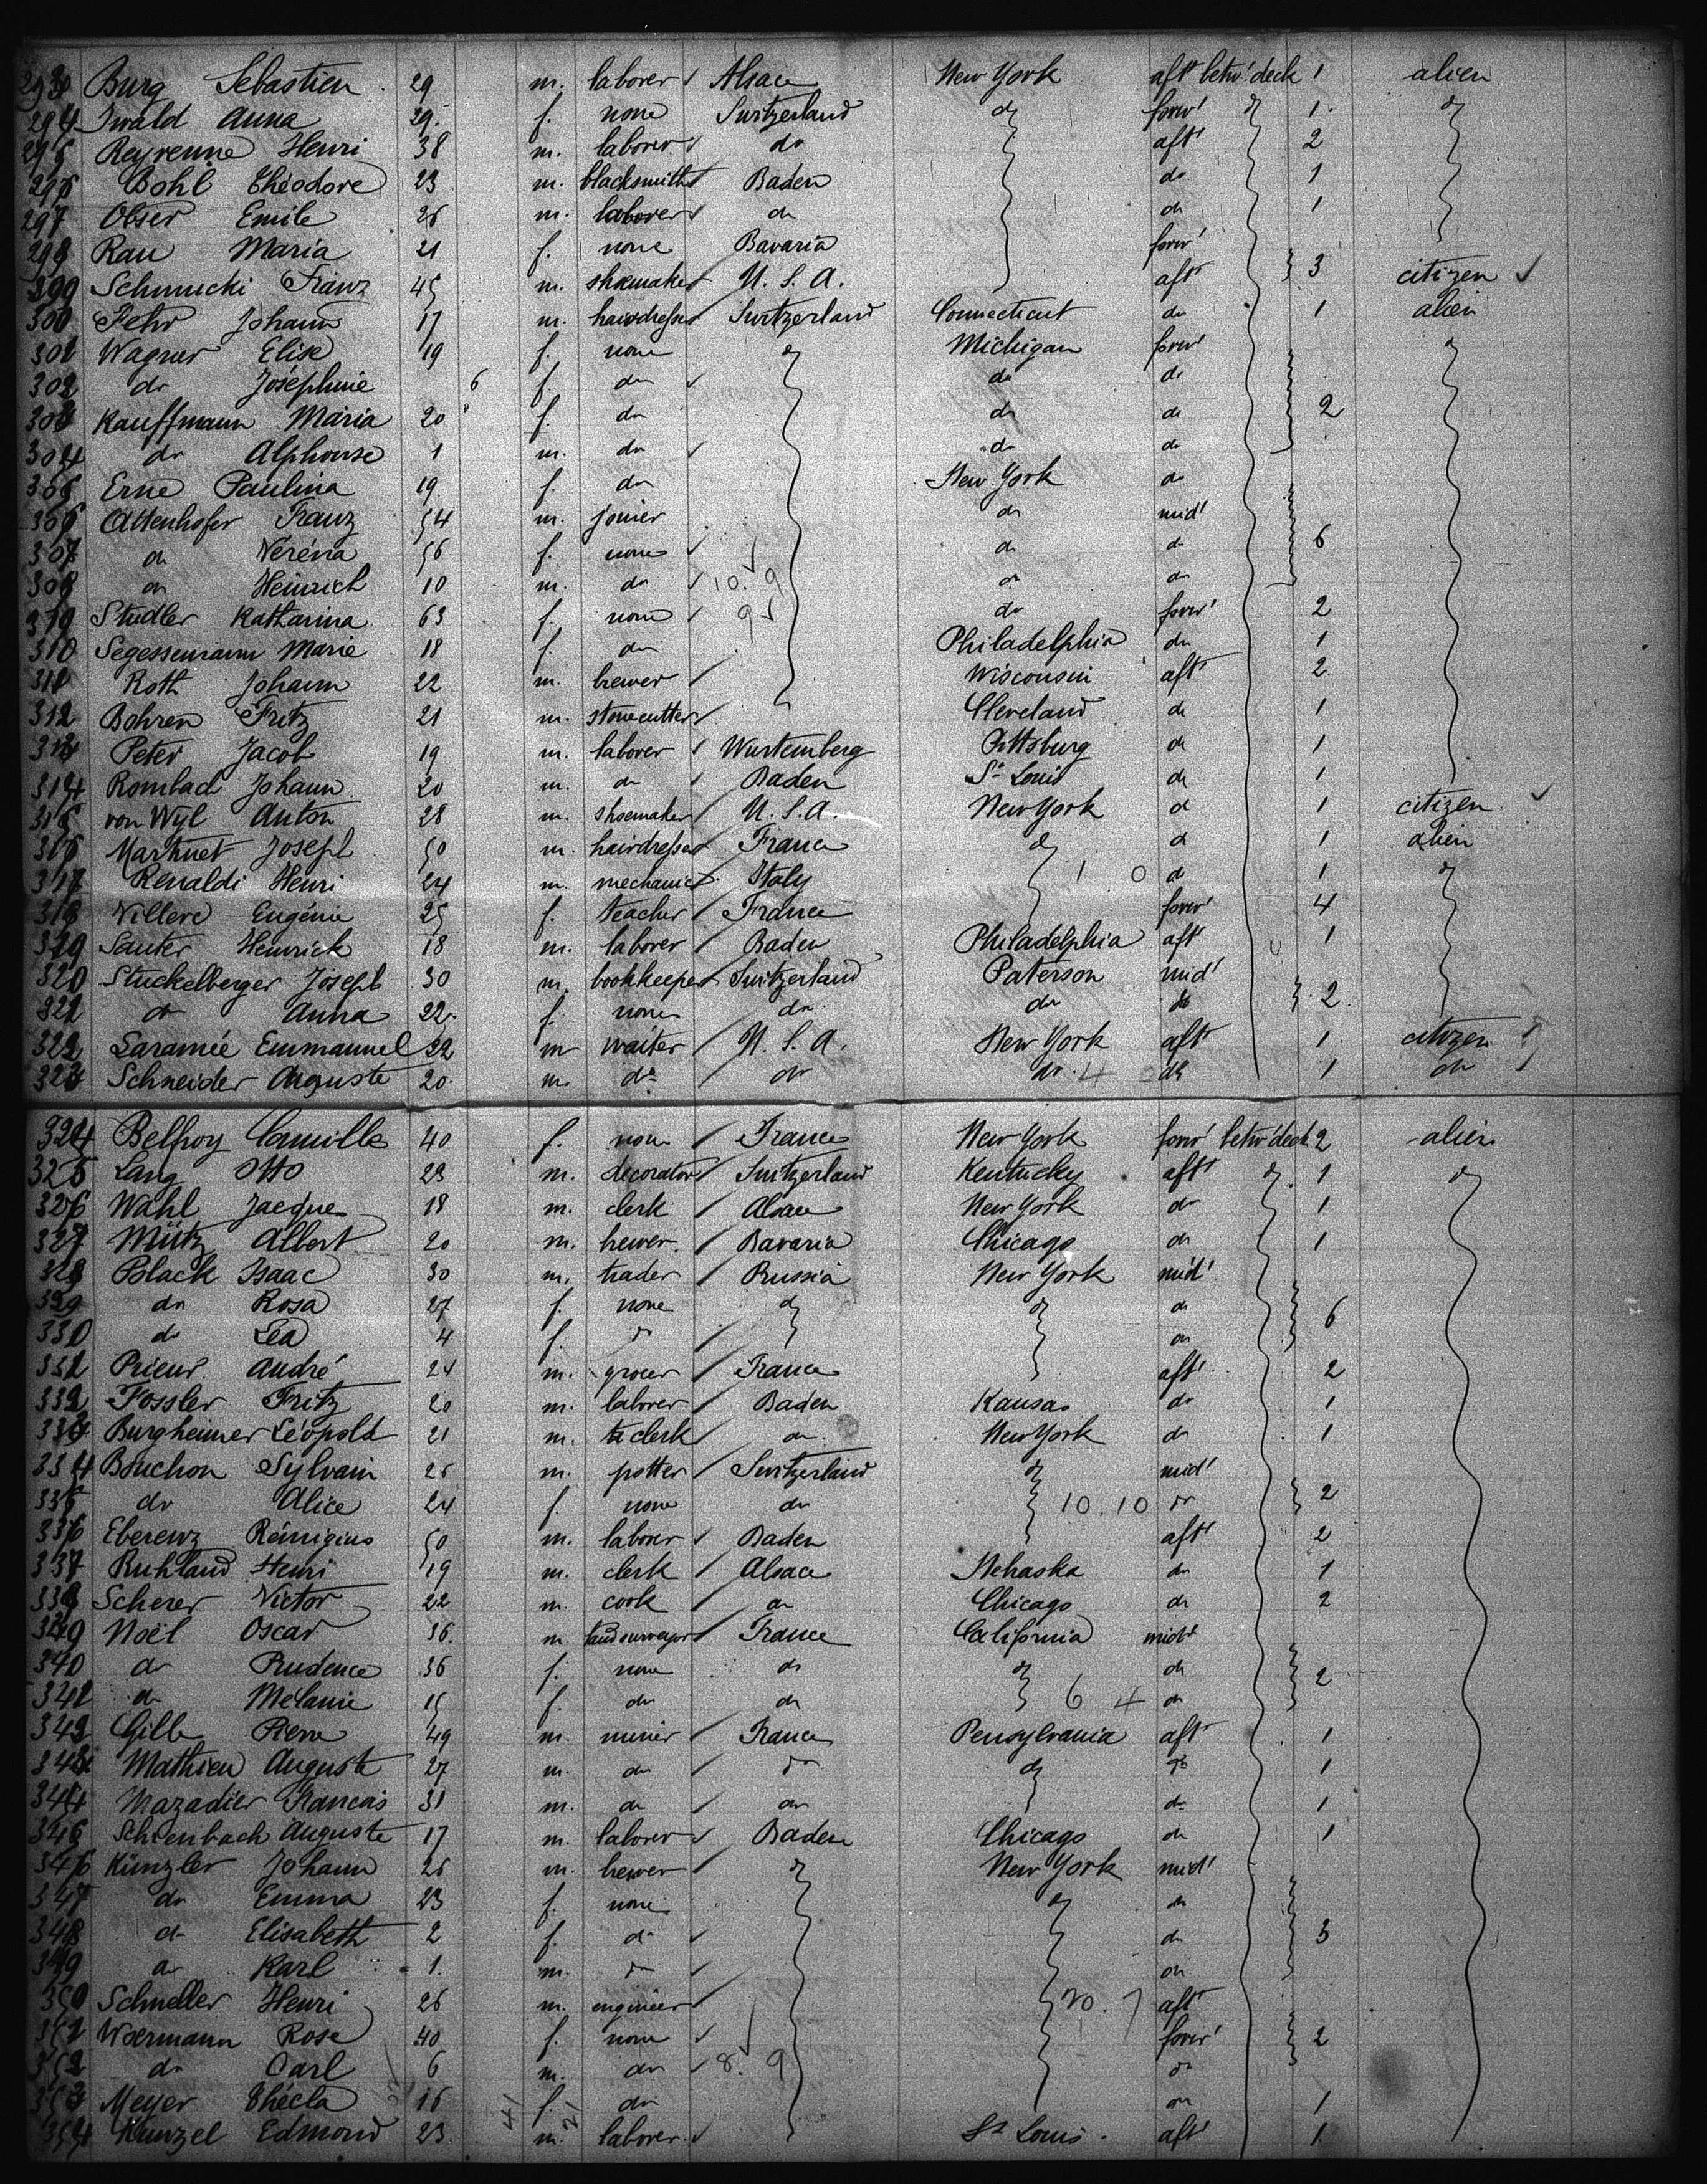 293 Burg Sebastien 29 m. laborer Alsace New York aft betw' deck 1 alien
294 Iwald Anna 29. f. none Switzerland do forw' do 1. do
295 Reyrenne Henri 38 m. laborer do aft 2
296 Bohl Théodore 23 m. blacksmith Baden do 1
297 Obser Emile 26 m. laborer do do 1
298 Rau Maria 21 f. none Bavaria forw'
299 Schmucki Franz 45 m. shoemaker U. S. A. aft 3 citizen ✓
300 Fehr Johann 17 m. hairdresser Switzerland Connecticut do 1 alien
301 Wagner Elise 19 f. none do Michigan forw' do
302 do Joséphine 6 f. do ✓ do do
303 Kauffmann Maria 20 f. do do do 2
304 do Alphonse 1 m. do ✓ do do
305 Erne Paulina 19. f. do New York do
306 Attenhofer Franz 54 m. joiner do mid'
307 do Véréna 56 f. none ✓ do do 6
308 do Heinrich 10 m. do ✓ 10. 9 do do
309 Studler Katharina 63 f. none ✓ 9 do forw' 2
310 Segessemann Marie 18 f. do Philadelphia do 1
311 Roth Johann 22 m. brewer Wisconsin aft 2
312 Bohren Fritz 21 m. stonecutter Cleveland do 1
313 Peter Jacob 19 m. laborer Wurtemberg Pittsburg do 1
314 Rombach Johann 20 m. do Baden St Louis do 1
315 von Wyl Anton 28 m. shoemaker U. S. A. New York do 1 citizen ✓
316 Martinet Joseph 50 m. hairdresser France do do 1 alien
317 Renaldi Henri 24 m. mechanic Italy 1 0 do 1 do
318 Villere Eugénie 25 f. teacher France forw' 4
319 Sauter Heinrich 18 m. laborer Baden Philadelphia aft 1
320 Stuckelberger Joseph 30 m. bookkeeper Switzerland Paterson mid'
321 do Anna 22. f. none do do do 2.
322 Laramée Emmanuel 22 m waiter U. S. A. New York aft 1. citizen
323 Schneider Auguste 20. m. do do do 4 do 1 do
324 Belfroy Camille 40 f. none France New York forw' betw' deck 2 alien
325 Lang Otto 23 m. decorator Switzerland Kentucky aft do 1 do
326 Wahl Jacque 18 m. clerk Alsace New York do 1
327 Mütz Albert 20 m. brewer. Bavaria Chicago do 1
328 Polack Isaac 30 m. trader Russia New York mid'
329 do Rosa 27 f. none do do do 6
330 do Lea 4 f. do do
331 Prieur André 24 m. grocer France aft' 2
332 Fossler Fritz 20 m. laborer Baden Kansas do 1
333 Burgheimer Léopold 21 m. clerk do New York do 1
334 Bouchon Sylvain 26 m. potter Switzerland do mid'
335 do Alice 24 f. none do 10. 10 do 2
336 Eberenz Rémigius 50 m. laborer Baden aft 2
337 Ruhland Henri 19 m. clerk Alsace Nehaska do 1
338 Scherer Victor 22 m. cook do Chicago do 2
339 Noël Oscar 36. m landsurveyor France California mid'
340 do Prudence 36 f. none do do do 2
341 do Mélanie 15 f. do do 6 4 do
342 Gille Pierre 49 m. miner France Pensylvania aft 1
343 Mathieu Auguste 27 m. do do do do 1
344 Mazadier Francais 31 m. do do do 1
345 Schienbach Auguste 17 m. laborer Baden Chicago do 1
346 Künzler Johann 26 m. brewer do New York mid'
347 do Emma 23 f. none do do
348 do Elisabeth 2 f. do ✓ do 3
349 do Karl 1. m. do do
350 Schneller Henri 26 m. engineer 20. 7 aft
351 Woermann Rose 40 f. none ✓ forw' 2
352 do Carl 6 m. do ✓ 8. 9 do
353 Meyer Thécla 16 f. do do 1
354 Kunzel Edmond 23. m. laborer ✓ St Louis. aft' 1